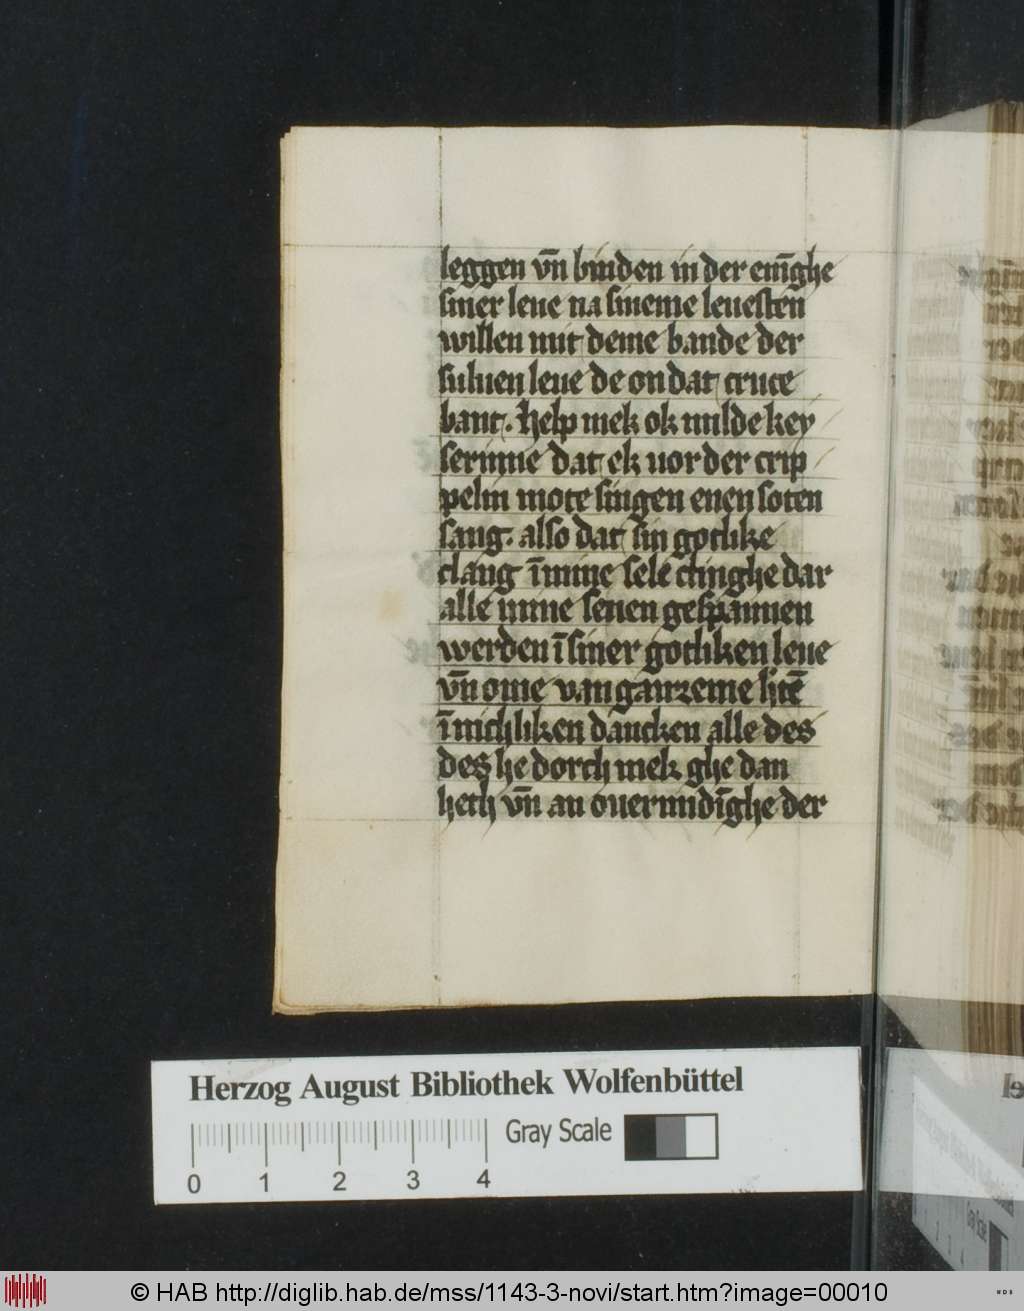 leggen vn̄ binden in der eni̅ghe
siner leue na sineme leuesten
willen mit deme bande der
suluen leue de on dat cruce
bant. help mek ok milde key
serinne dat ek vor der crip
pelin mote singen enen soten
sang. also dat sin gotlike
clang ī mine sele clinghe dar
alle mine senen gespannen
werden ī siner gotliken leue
vn̄ ome van gantzeme hrtē
īnichliken dancken alle des
des he dorch mek ghe dan
heth vn̄ an ouermidīghe der
Herzog August Bibliothek Wolfenbüttel
Gray Scale
0 1 2 3 4
© HAB http://diglib.hab.de/mss/1143-3-novi/start.htm?image=00010